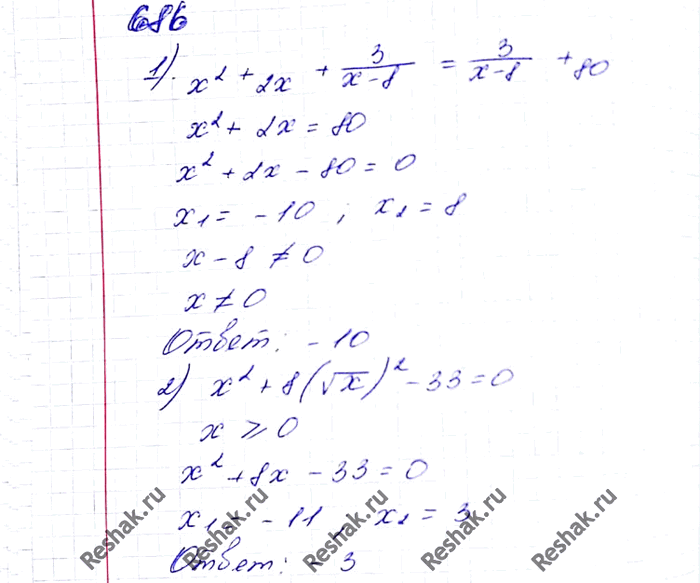 686
1). x² + 2x + 3/(x-8) = 3/(x-8) + 80
x² + 2x = 80
x² + 2x - 80 = 0
x₁ = -10 ; x₂ = 8
x - 8 ≠ 0
x ≠ 0
Ответ: -10
2) x² + 8(√x)² - 33 = 0
x ⩾ 0
x² + 8x - 33 = 0
x₁ = -11, x₂ = 3
Ответ: - 3
Reshak.ru Reshak.ru Reshak.ru Reshak.ru